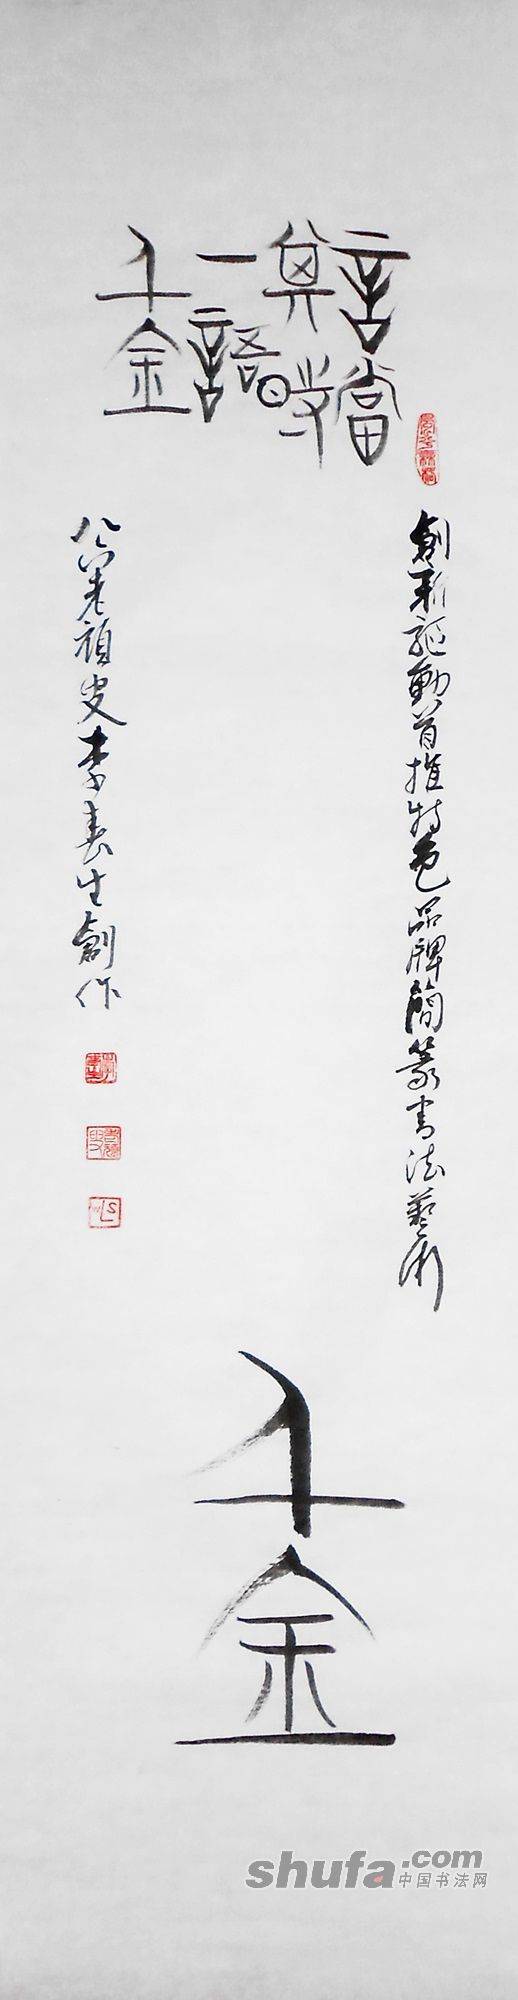 言當
其時
一語
千金
創新驅動首推特色品牌簡篆書法藝術
八六老頑叟李春生創作
千金
shufa.com
中国书法网